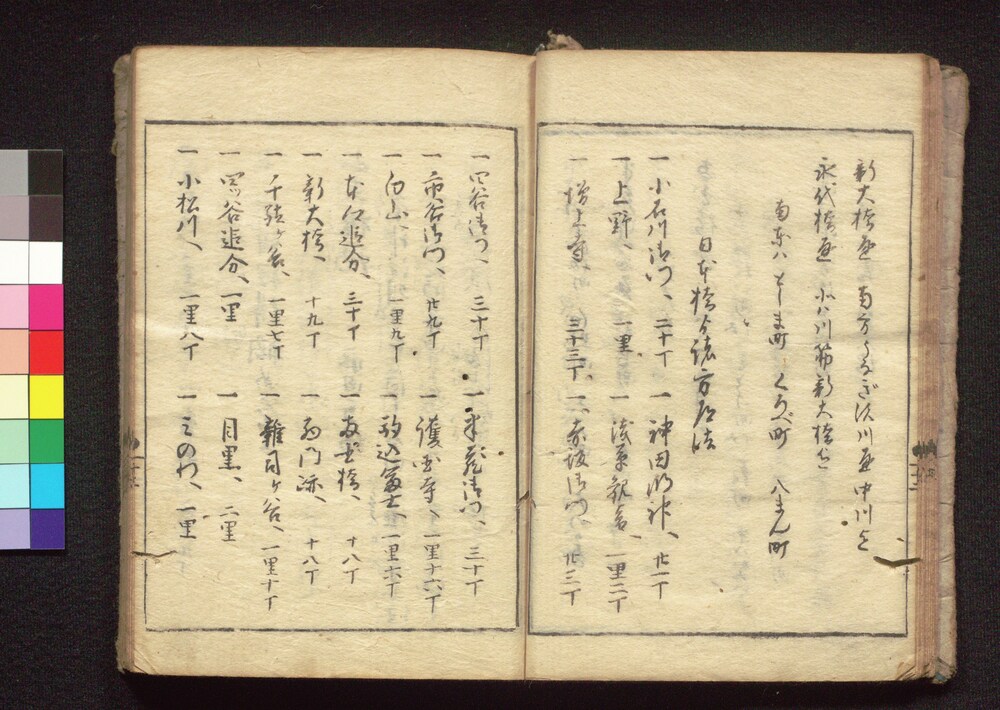 新大橋通 南方うなぎ沢川通 中川迄
永代橋通 小八川筋新大橋迄
南東ハ としま町 くろべ町 八まん町
日本橋ゟ諸方道法
一 小石川御門へ 二十丁 一 神田明神へ 廿一丁
一 上野へ 一里 一 浅草観音へ 一里二丁
一 増上寺へ 三十三丁 一 赤坂御門へ 廿三丁
一 四谷御門へ 三十丁 一 半蔵御門へ 三十丁
一 市谷御門へ 廿九丁 一 護国寺へ 一里十六丁
一 白山へ 一里九丁 一 駒込富士 一里六丁
一 本江追分へ 三十丁 一 両国橋へ 十八丁
一 新大橋へ 十九丁 一 西門跡へ 十八丁
一 千駄ヶ谷へ 一里七丁 一 雑司ヶ谷へ 一里十丁
一 四ッ谷追分へ 一里 一 目黒へ 二里
一 小松川へ 一里八丁 一 三のわへ 一里